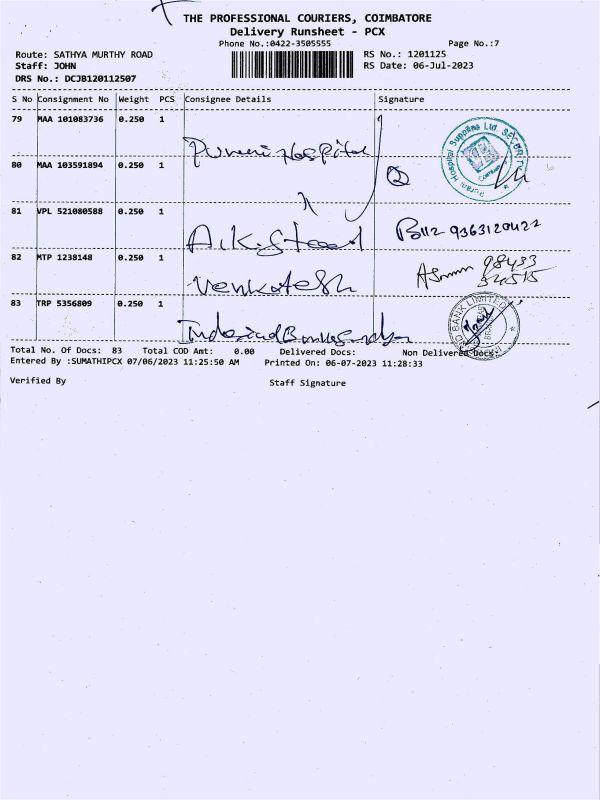 THE PROFESSIONAL COURIERS, COIMBATORE
Delivery Runsheet - PCX
Phone No.:0422-3505555 Page No.:7
Route: SATHYA MURTHY ROAD RS No.: 1201125
Staff: JOHN RS Date: 06-Jul-2023
DRS No.: DCJB120112507
S No Consignment No Weight PCS Consignee Details Signature
79 MAA 101083736 0.250 1
Hospital
80 MAA 103591894 0.250 1
81 VPL 521080588 0.250 1
9363120422
82 MTP 1238148 0.250 1
Venkatesh
98433
83 TRP 5356809 0.250 1
Total No. Of Docs: 83 Total COD Amt: 0.00 Delivered Docs: Non Delivered Docs:
Entered By :SUMATHIPCX 07/06/2023 11:25:50 AM Printed On: 06-07-2023 11:28:33
Verified By Staff Signature